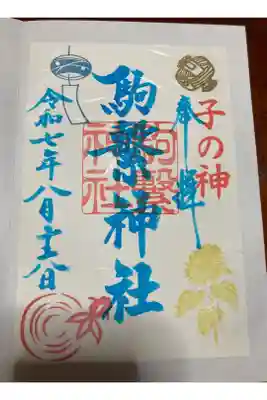 子の神
奉拝
駒繋神社
駒繋神社
令和七年八月二十八日